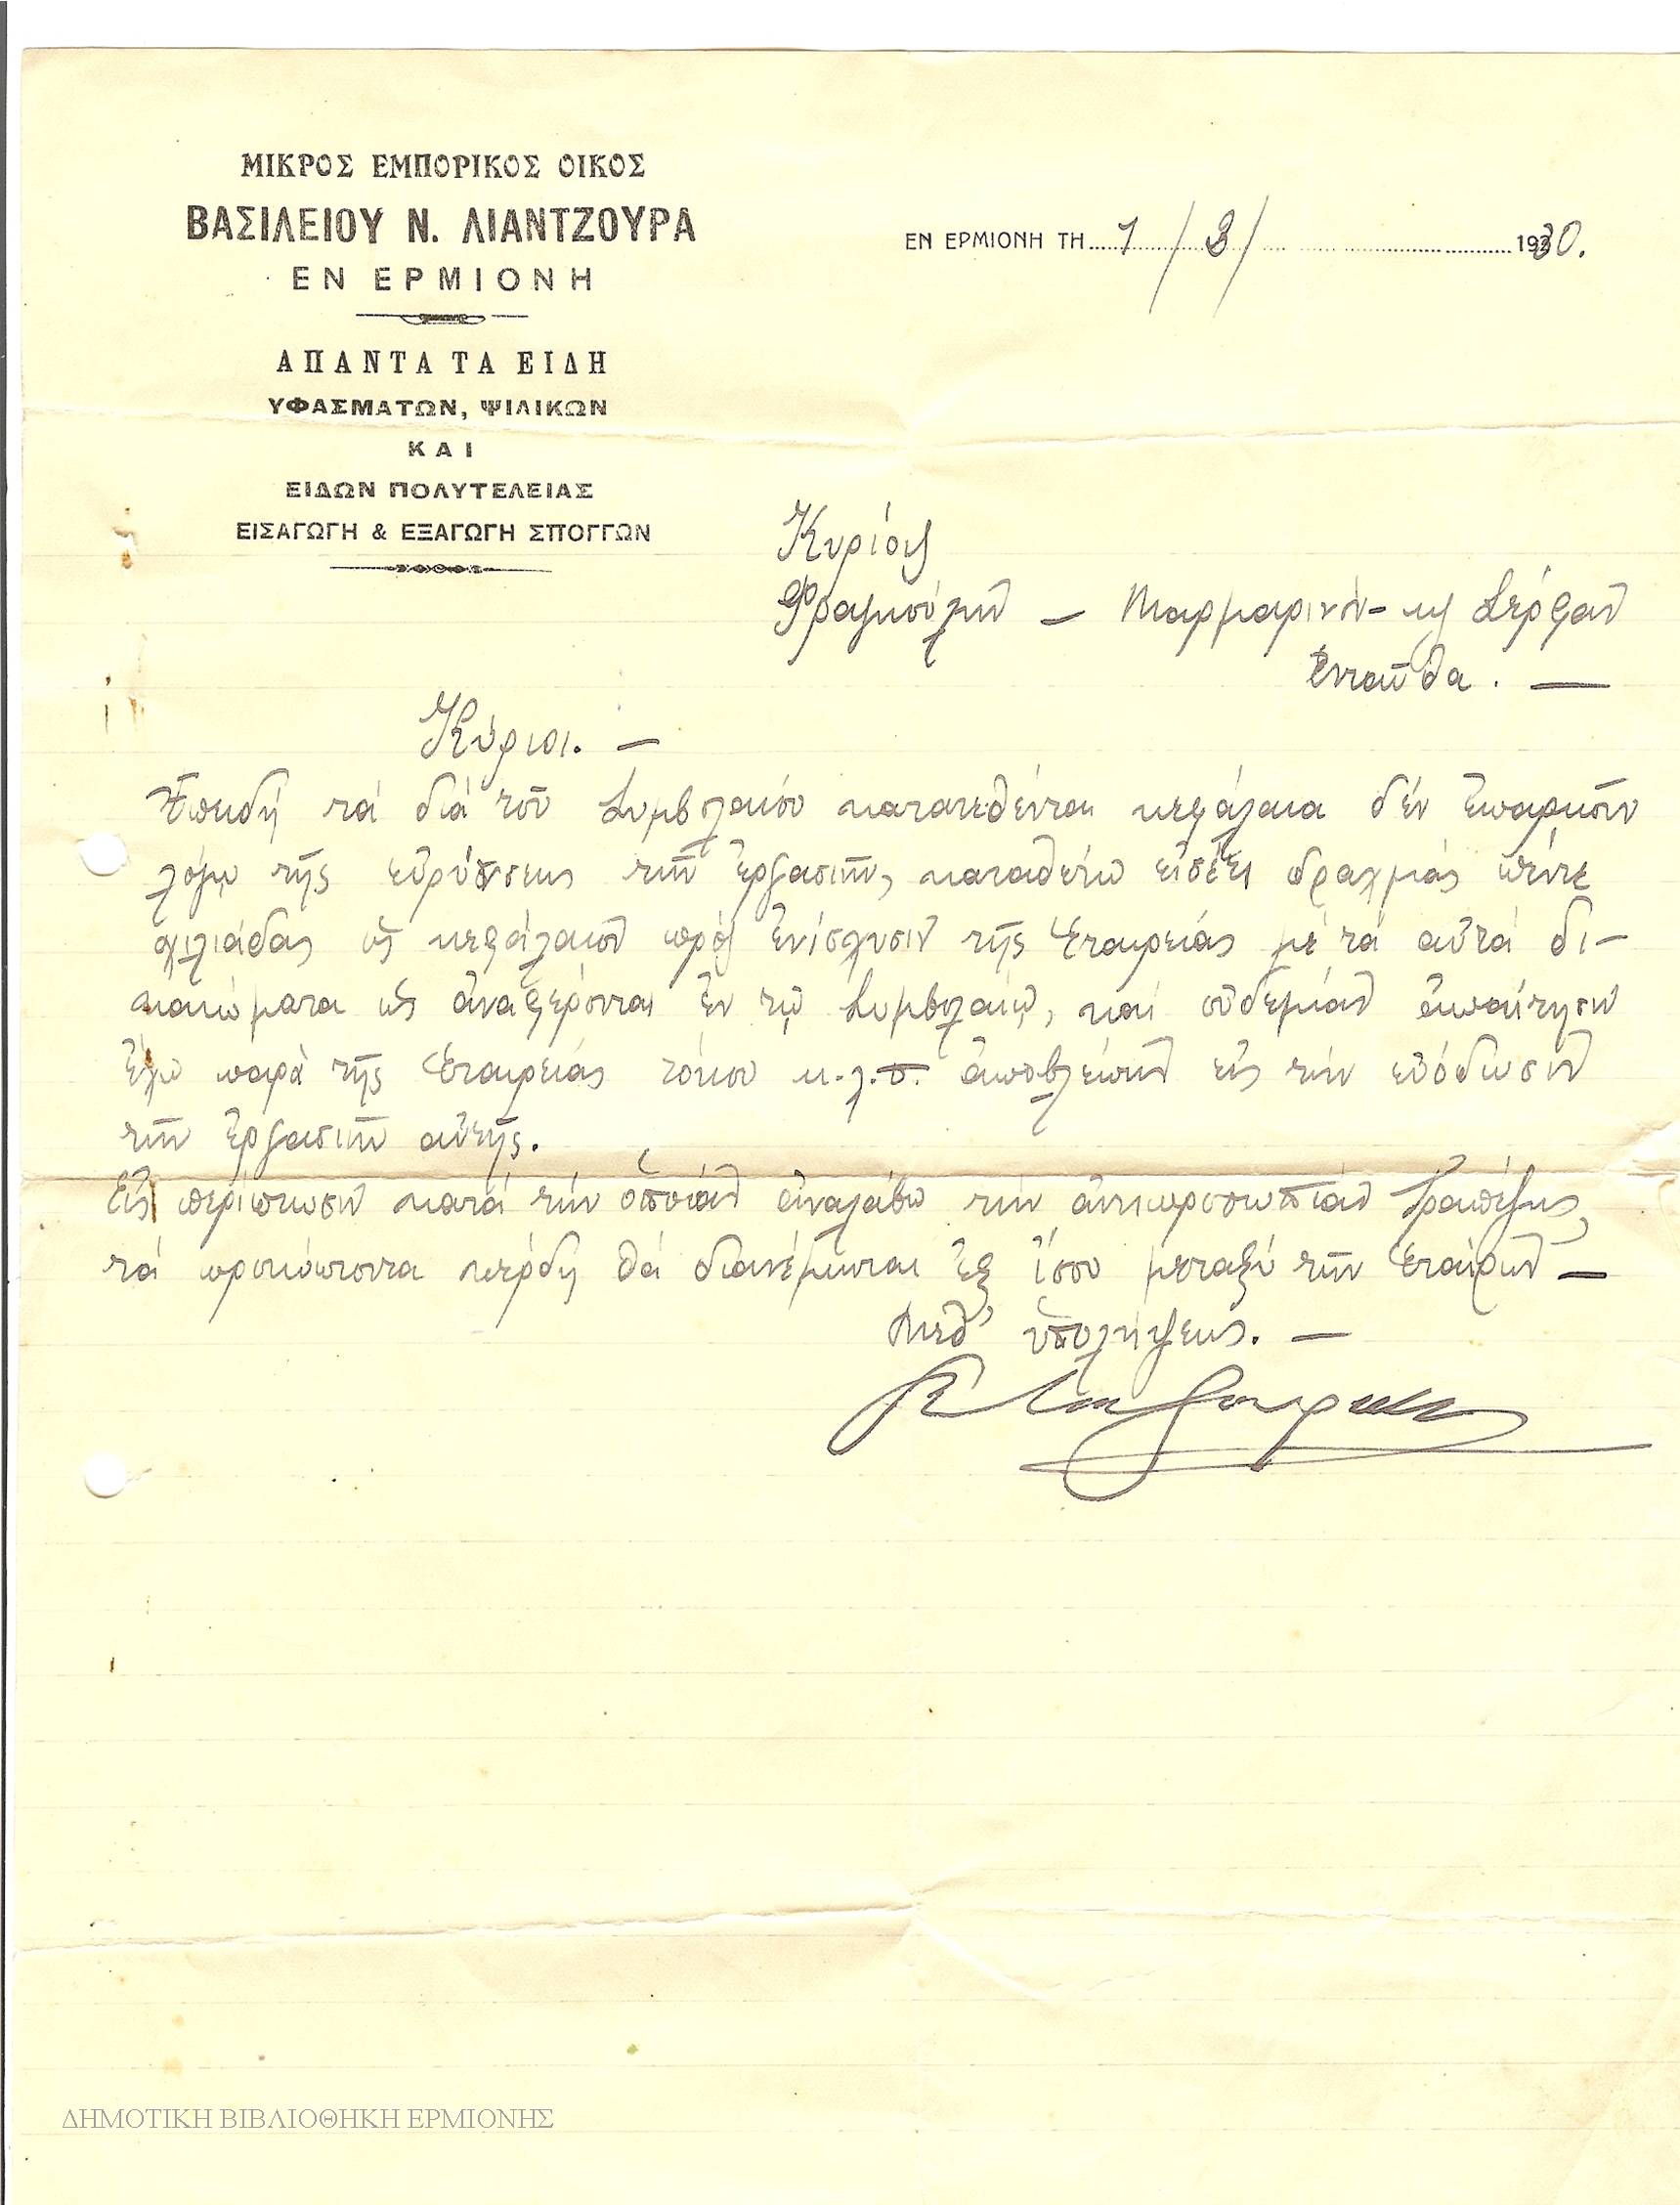 ΜΙΚΡΟΣ ΕΜΠΟΡΙΚΟΣ ΟΙΚΟΣ
ΒΑΣΙΛΕΙΟΥ Ν. ΛΙΑΝΤΖΟΥΡΑ
ΕΝ ΕΡΜΙΟΝΗ
ΑΠΑΝΤΑ ΤΑ ΕΙΔΗ
ΥΦΑΣΜΑΤΩΝ, ΨΙΛΙΚΩΝ
ΚΑΙ
ΕΙΔΩΝ ΠΟΛΥΤΕΛΕΙΑΣ
ΕΙΣΑΓΩΓΗ & ΕΞΑΓΩΓΗ ΣΠΟΓΓΩΝ
ΕΝ ΕΡΜΙΟΝΗ ΤΗ 1/3/ 1930.
Κυρίους
Φραγκούλην – Μαρμαρινόν – κ Σέρφαν
Ἐνταῦθα. —
Κύριοι. —
Ἐπειδή τά διά τοῦ Συμβολαίου κατατεθέντα κεφάλαια δέν ἐπαρκοῦν
λόγω τῆς εὐρύνσεως τῶν ἐργασιῶν, καταθέτω εἰσέτι δραχμάς πέντε
χιλιάδας ὡς κεφάλαιον πρός ἐνίσχυσιν τῆς Ἑταιρείας μέ τά αὐτά δι-
καιώματα ὡς ἀναφέρονται ἐν τῷ Συμβολαίῳ, καί οὐδεμίαν ἀπαίτησιν
ἔχω παρὰ τῆς Ἑταιρείας τόκου κ.λ.π. ἀποβλέπων εἰς τήν εὐόδωσιν
τῶν ἐργασιῶν αὐτῆς.
Εἰς περίπτωσιν κατά τήν ὁποίαν ἀναλάβω τήν ἀντιπροσωπίαν Τραπέζης,
τά προκύπτοντα κέρδη θά διανέμωνται ἐξ ἴσου μεταξύ τῶν Ἑταίρων —
Μεθ' ὑπολήψεως. —
ΔΗΜΟΤΙΚΗ ΒΙΒΛΙΟΘΗΚΗ ΕΡΜΙΟΝΗΣ